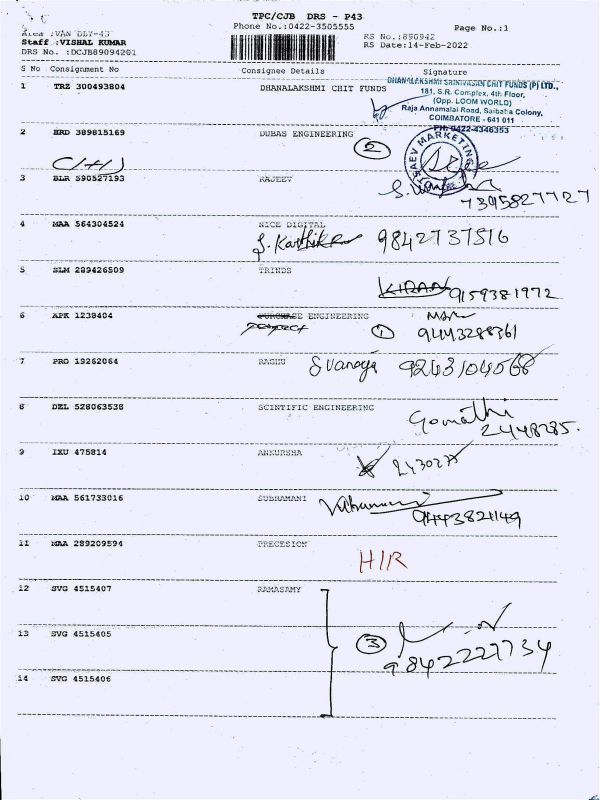 TPC/CJB DRS - P43
Phone No.:0422-3505555
Page No.:1
Area :VAN DLY-43
Staff :VISHAL KUMAR
DRS No. :DCJB89094201
RS No.:890942
RS Date:14-Feb-2022
S No Consignment No Consignee Details Signature
1 TRZ 300493804 DHANALAKSHMI CHIT FUNDS
DHANALAKSHMI SRINIVASAN CHIT FUNDS (P) LTD.,
181, S.R. Complex, 4th Floor,
(Opp. LOOM WORLD)
Raja Annamalai Road, Saibaba Colony,
COIMBATORE - 641 011
PH: 0422-4346353
2 HRD 389815169 DUBAS ENGINEERING 2
MARKETING
3 BLR 590527193 RAJEEV
7395827727
4 MAA 564304524 NICE DIGITAL
S. Karthika 9842737516
5 SLM 289426509 TRINDS
KIRAN 9159381972
6 APK 1238404 PURCHASE ENGINEERING
1 9443288361
7 PRO 19262064 RAGHU Svaraja 9243104568
8 DEL 528063538 SCINTIFIC ENGINEERING
Gomathi
2448285.
9 IXU 475814 ANKURSHA
2430277
10 MAA 561733016 SUBRAMANI
9443821149
11 MAA 289209594 PRECESION
H/R
12 SVG 4515407 RAMASAMY
13 SVG 4515405 3
9842227734
14 SVG 4515406